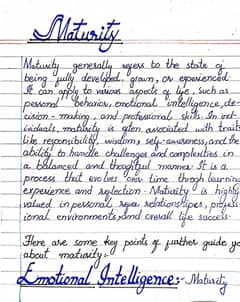 Maturity
Maturity generally refers to the state of
being fully developed, grown, or experienced
It can apply to various aspects of life, such as
personal behavior, emotional intelligence, de-
cision-making, and professional skills. In ind-
ividuals, maturity is often associated with traits
like responsibility, wisdom, self-awareness, and the
ability to handle challenges and complexities in
a balanced and thoughtful manner. It is a
process that evolves over time through learning
experience and reflection. Maturity is highly
valued in personal relationships, profess-
ional environments, and overall life success.
Here are some key points of further guide yo
about maturity:-
Emotional Intelligence:- Maturity